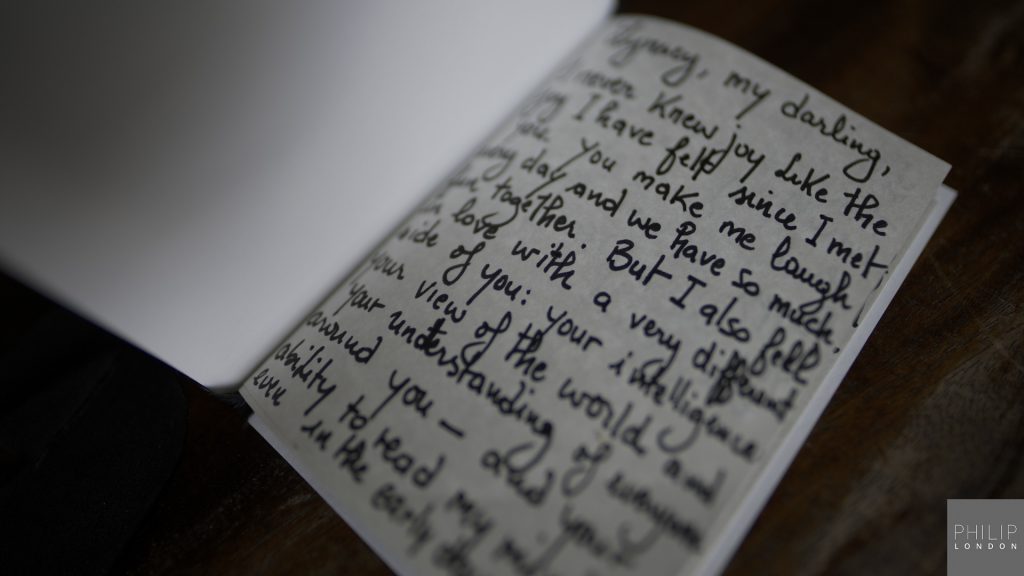 my darling,
never knew joy like the
I have felt since I met
you. You make me laugh
every day and we have so much
fun together. But I also fell
in love with a very different
side of you: your intelligence
your view of the world and
your understanding of everyone
around you — and your
ability to read my
even in the early
PHILIP
LONDON